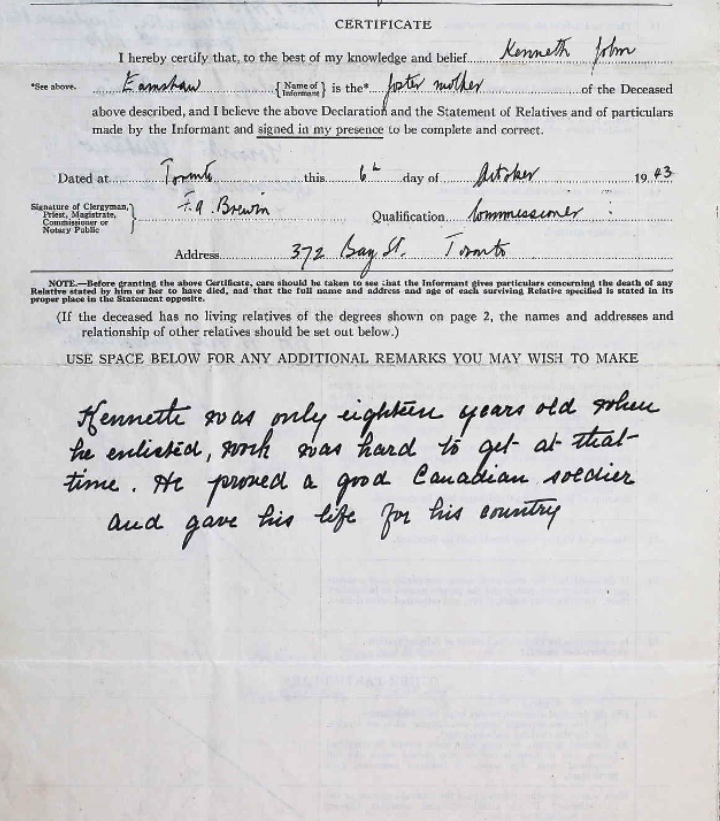 CERTIFICATE
I hereby certify that, to the best of my knowledge and belief Kenneth John
*See above. Earnshaw {Name of Informant} is the* foster mother of the Deceased
above described, and I believe the above Declaration and the Statement of Relatives and of particulars
made by the Informant and signed in my presence to be complete and correct.
Dated at Toronto this 6th day of October 1943
Signature of Clergyman, Priest, Magistrate, Commissioner or Notary Public} F.A. Brewin Qualification Commissioner
Address 372 Bay St. Toronto
NOTE.—Before granting the above Certificate, care should be taken to see that the Informant gives particulars concerning the death of any
Relative stated by him or her to have died, and that the full name and address and age of each surviving Relative specified is stated in its
proper place in the Statement opposite.
(If the deceased has no living relatives of the degrees shown on page 2, the names and addresses and
relationship of other relatives should be set out below.)
USE SPACE BELOW FOR ANY ADDITIONAL REMARKS YOU MAY WISH TO MAKE
Kenneth was only eighteen years old when
he enlisted, work was hard to get at that
time. He proved a good Canadian soldier
and gave his life for his country